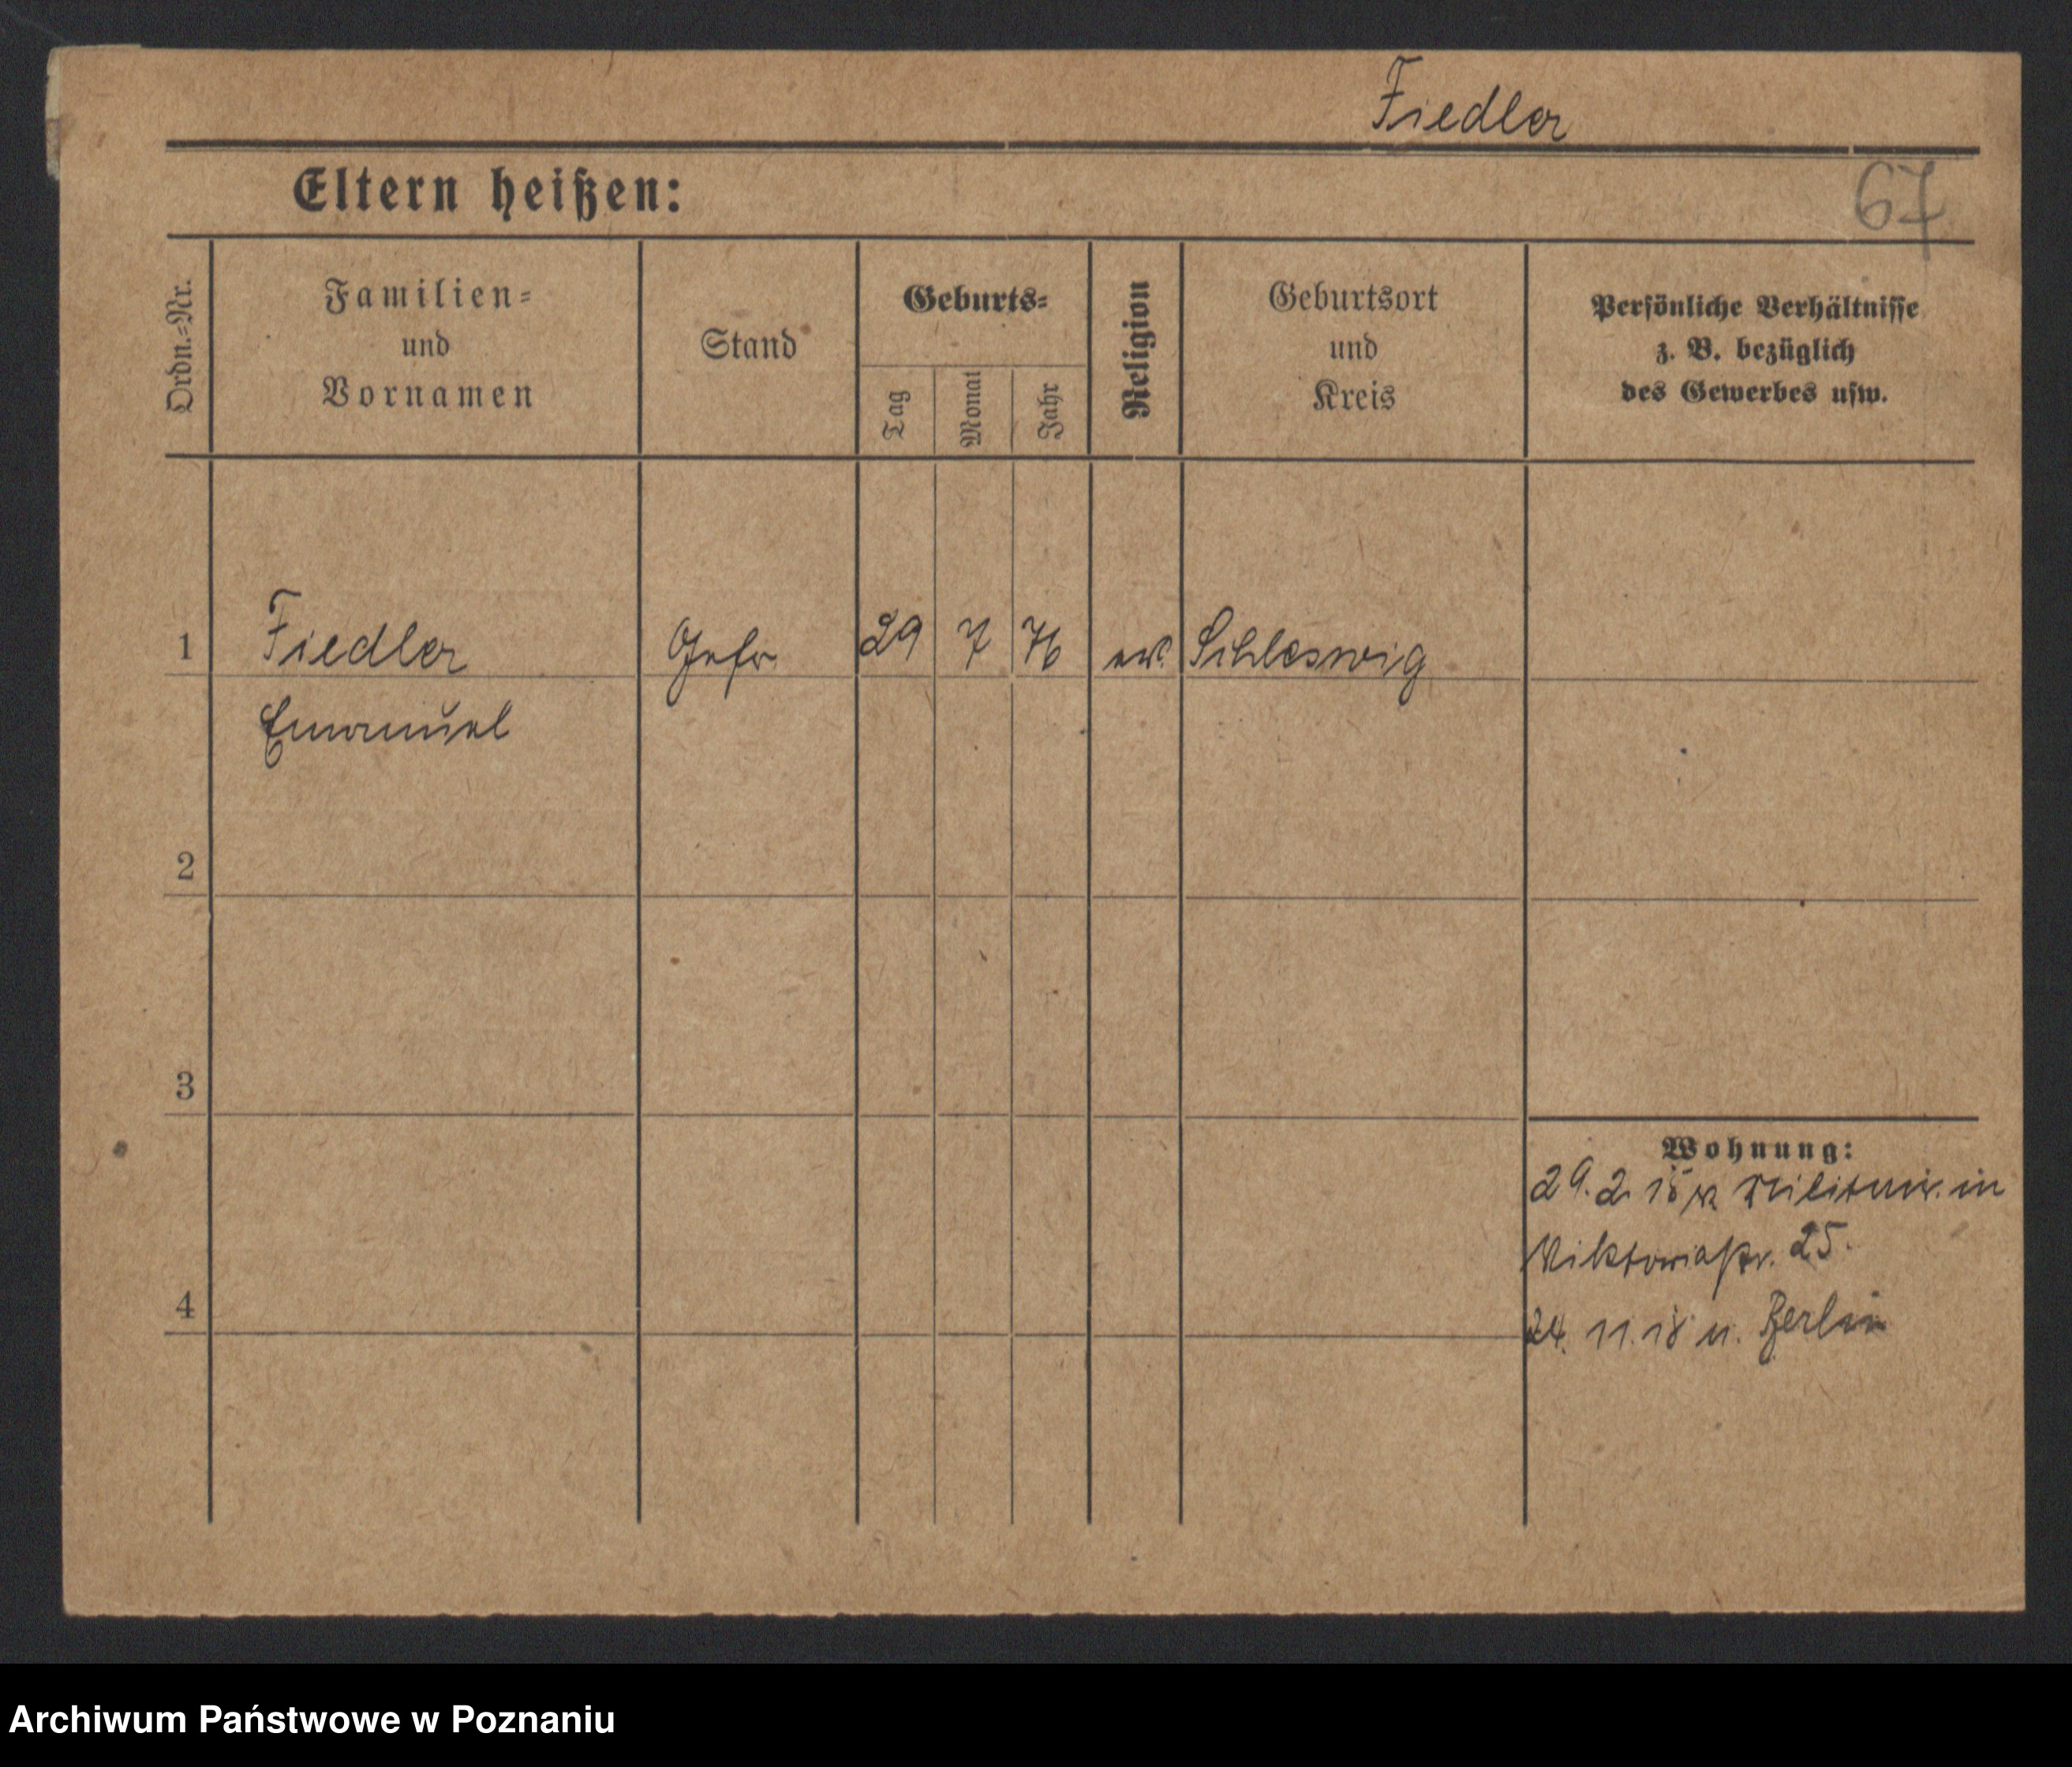 Fiedler
Eltern heißen:
67
Ordn.=Nr.
Familien=
und
Vornamen
Stand
Geburts=
Tag
Monat
Jahr
Religion
Geburtsort
und
Kreis
Persönliche Verhältnisse
z. B. bezüglich
des Gewerbes usw.
1 Fiedler Gefr 29 7 76 ev. Schleswig
Emanuel
2
3
Wohnung:
29. 2. 18 in
Viktoriastr. 25.
4
24. 11. 18 n. Berlin
Archiwum Państwowe w Poznaniu